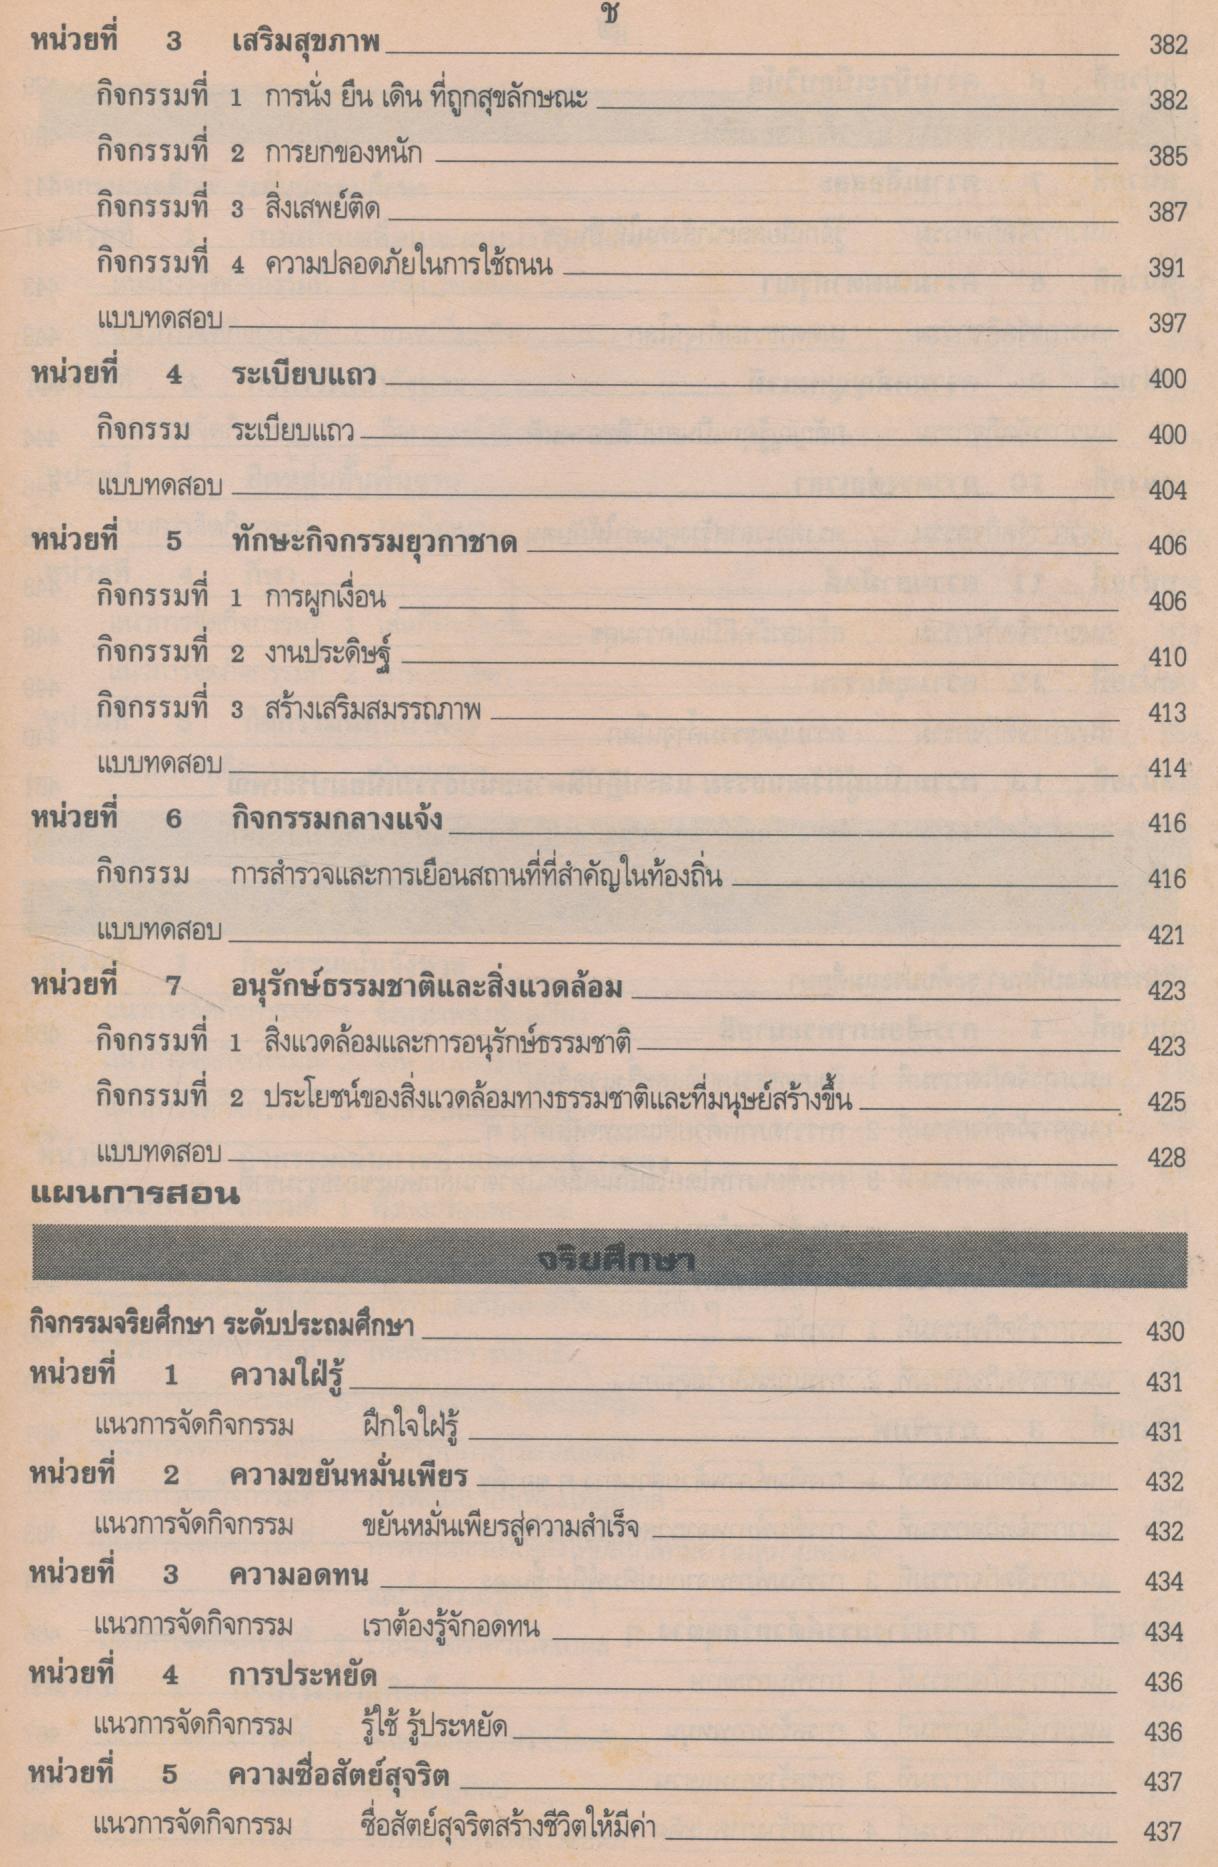 ช
หน่วยที่ 3 เสริมสุขภาพ 382
กิจกรรมที่ 1 การนั่ง ยืน เดิน ที่ถูกสุขลักษณะ 382
กิจกรรมที่ 2 การยกของหนัก 385
กิจกรรมที่ 3 สิ่งเสพย์ติด 387
กิจกรรมที่ 4 ความปลอดภัยในการใช้ถนน 391
แบบทดสอบ 397
หน่วยที่ 4 ระเบียบแถว 400
กิจกรรม ระเบียบแถว 400
แบบทดสอบ 404
หน่วยที่ 5 ทักษะกิจกรรมยุวกาชาด 406
กิจกรรมที่ 1 การผูกเงื่อน 406
กิจกรรมที่ 2 งานประดิษฐ์ 410
กิจกรรมที่ 3 สร้างเสริมสมรรถภาพ 413
แบบทดสอบ 414
หน่วยที่ 6 กิจกรรมกลางแจ้ง 416
กิจกรรม การสำรวจและการเยือนสถานที่ที่สำคัญในท้องถิ่น 416
แบบทดสอบ 421
หน่วยที่ 7 อนุรักษ์ธรรมชาติและสิ่งแวดล้อม 423
กิจกรรมที่ 1 สิ่งแวดล้อมและการอนุรักษ์ธรรมชาติ 423
กิจกรรมที่ 2 ประโยชน์ของสิ่งแวดล้อมทางธรรมชาติและที่มนุษย์สร้างขึ้น 425
แบบทดสอบ 428
แผนการสอน
จริยศึกษา
กิจกรรมจริยศึกษา ระดับประถมศึกษา 430
หน่วยที่ 1 ความใฝ่รู้ 431
แนวการจัดกิจกรรม ฝึกใจใฝ่รู้ 431
หน่วยที่ 2 ความขยันหมั่นเพียร 432
แนวการจัดกิจกรรม ขยันหมั่นเพียรสู่ความสำเร็จ 432
หน่วยที่ 3 ความอดทน 434
แนวการจัดกิจกรรม เราต้องรู้จักอดทน 434
หน่วยที่ 4 การประหยัด 436
แนวการจัดกิจกรรม รู้ใช้ รู้ประหยัด 436
หน่วยที่ 5 ความซื่อสัตย์สุจริต 437
แนวการจัดกิจกรรม ซื่อสัตย์สุจริตสร้างชีวิตให้มีค่า 437